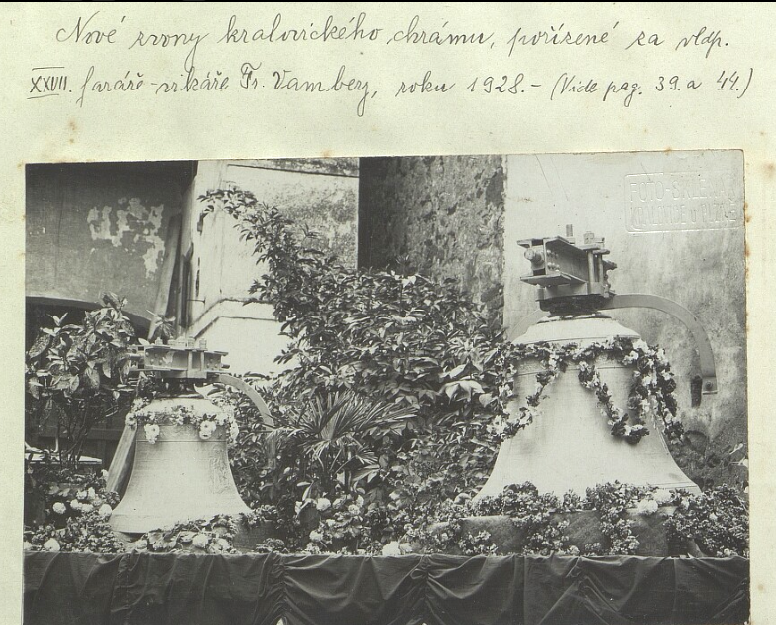 Nové zvony kralovického chrámu, pořízené za vldp.
XXVII. faráře-vikáře Fr. Vamberg, roku 1928.- (Vide pag. 39. a 44.)